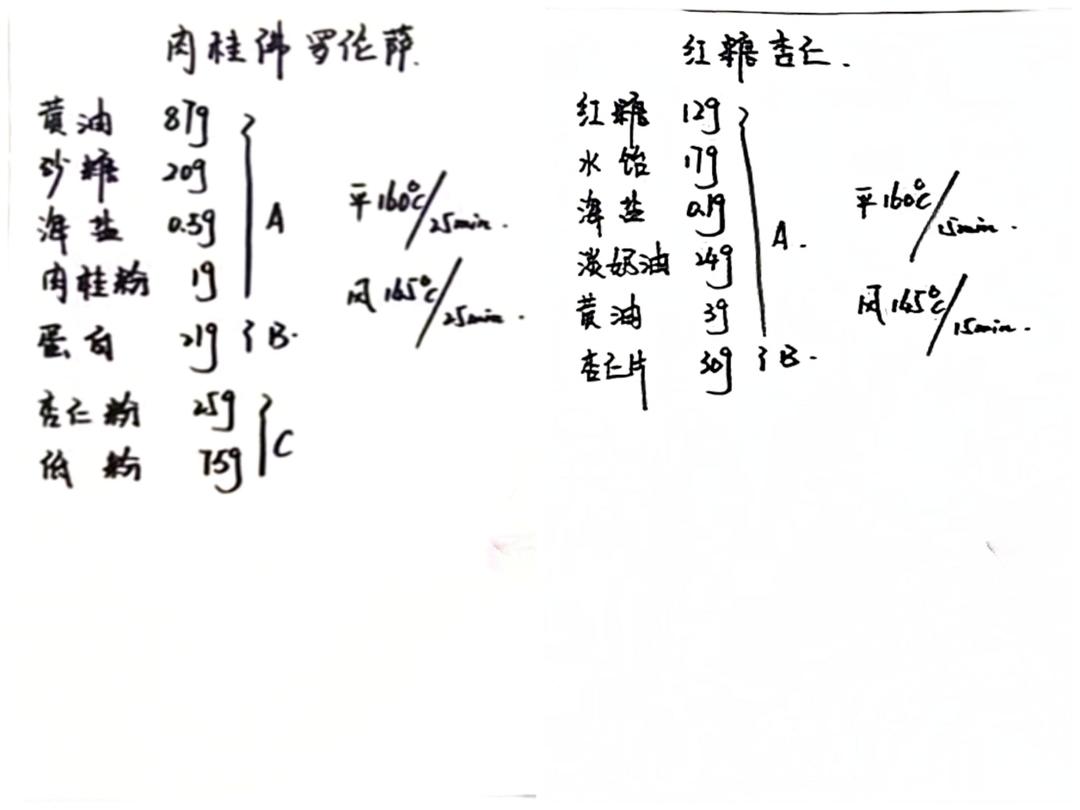 肉桂佛罗伦萨.
黄油 87g
砂糖 20g
海盐 0.5g
肉桂粉 1g
A
蛋白 21g B.
杏仁粉 25g
低粉 75g
C
平160℃/25min.
风165℃/25min.
红糖杏仁.
红糖 12g
水饴 17g
海盐 0.1g
淡奶油 24g
黄油 3g
A.
杏仁片 30g B.
平160℃/15min.
风165℃/15min.